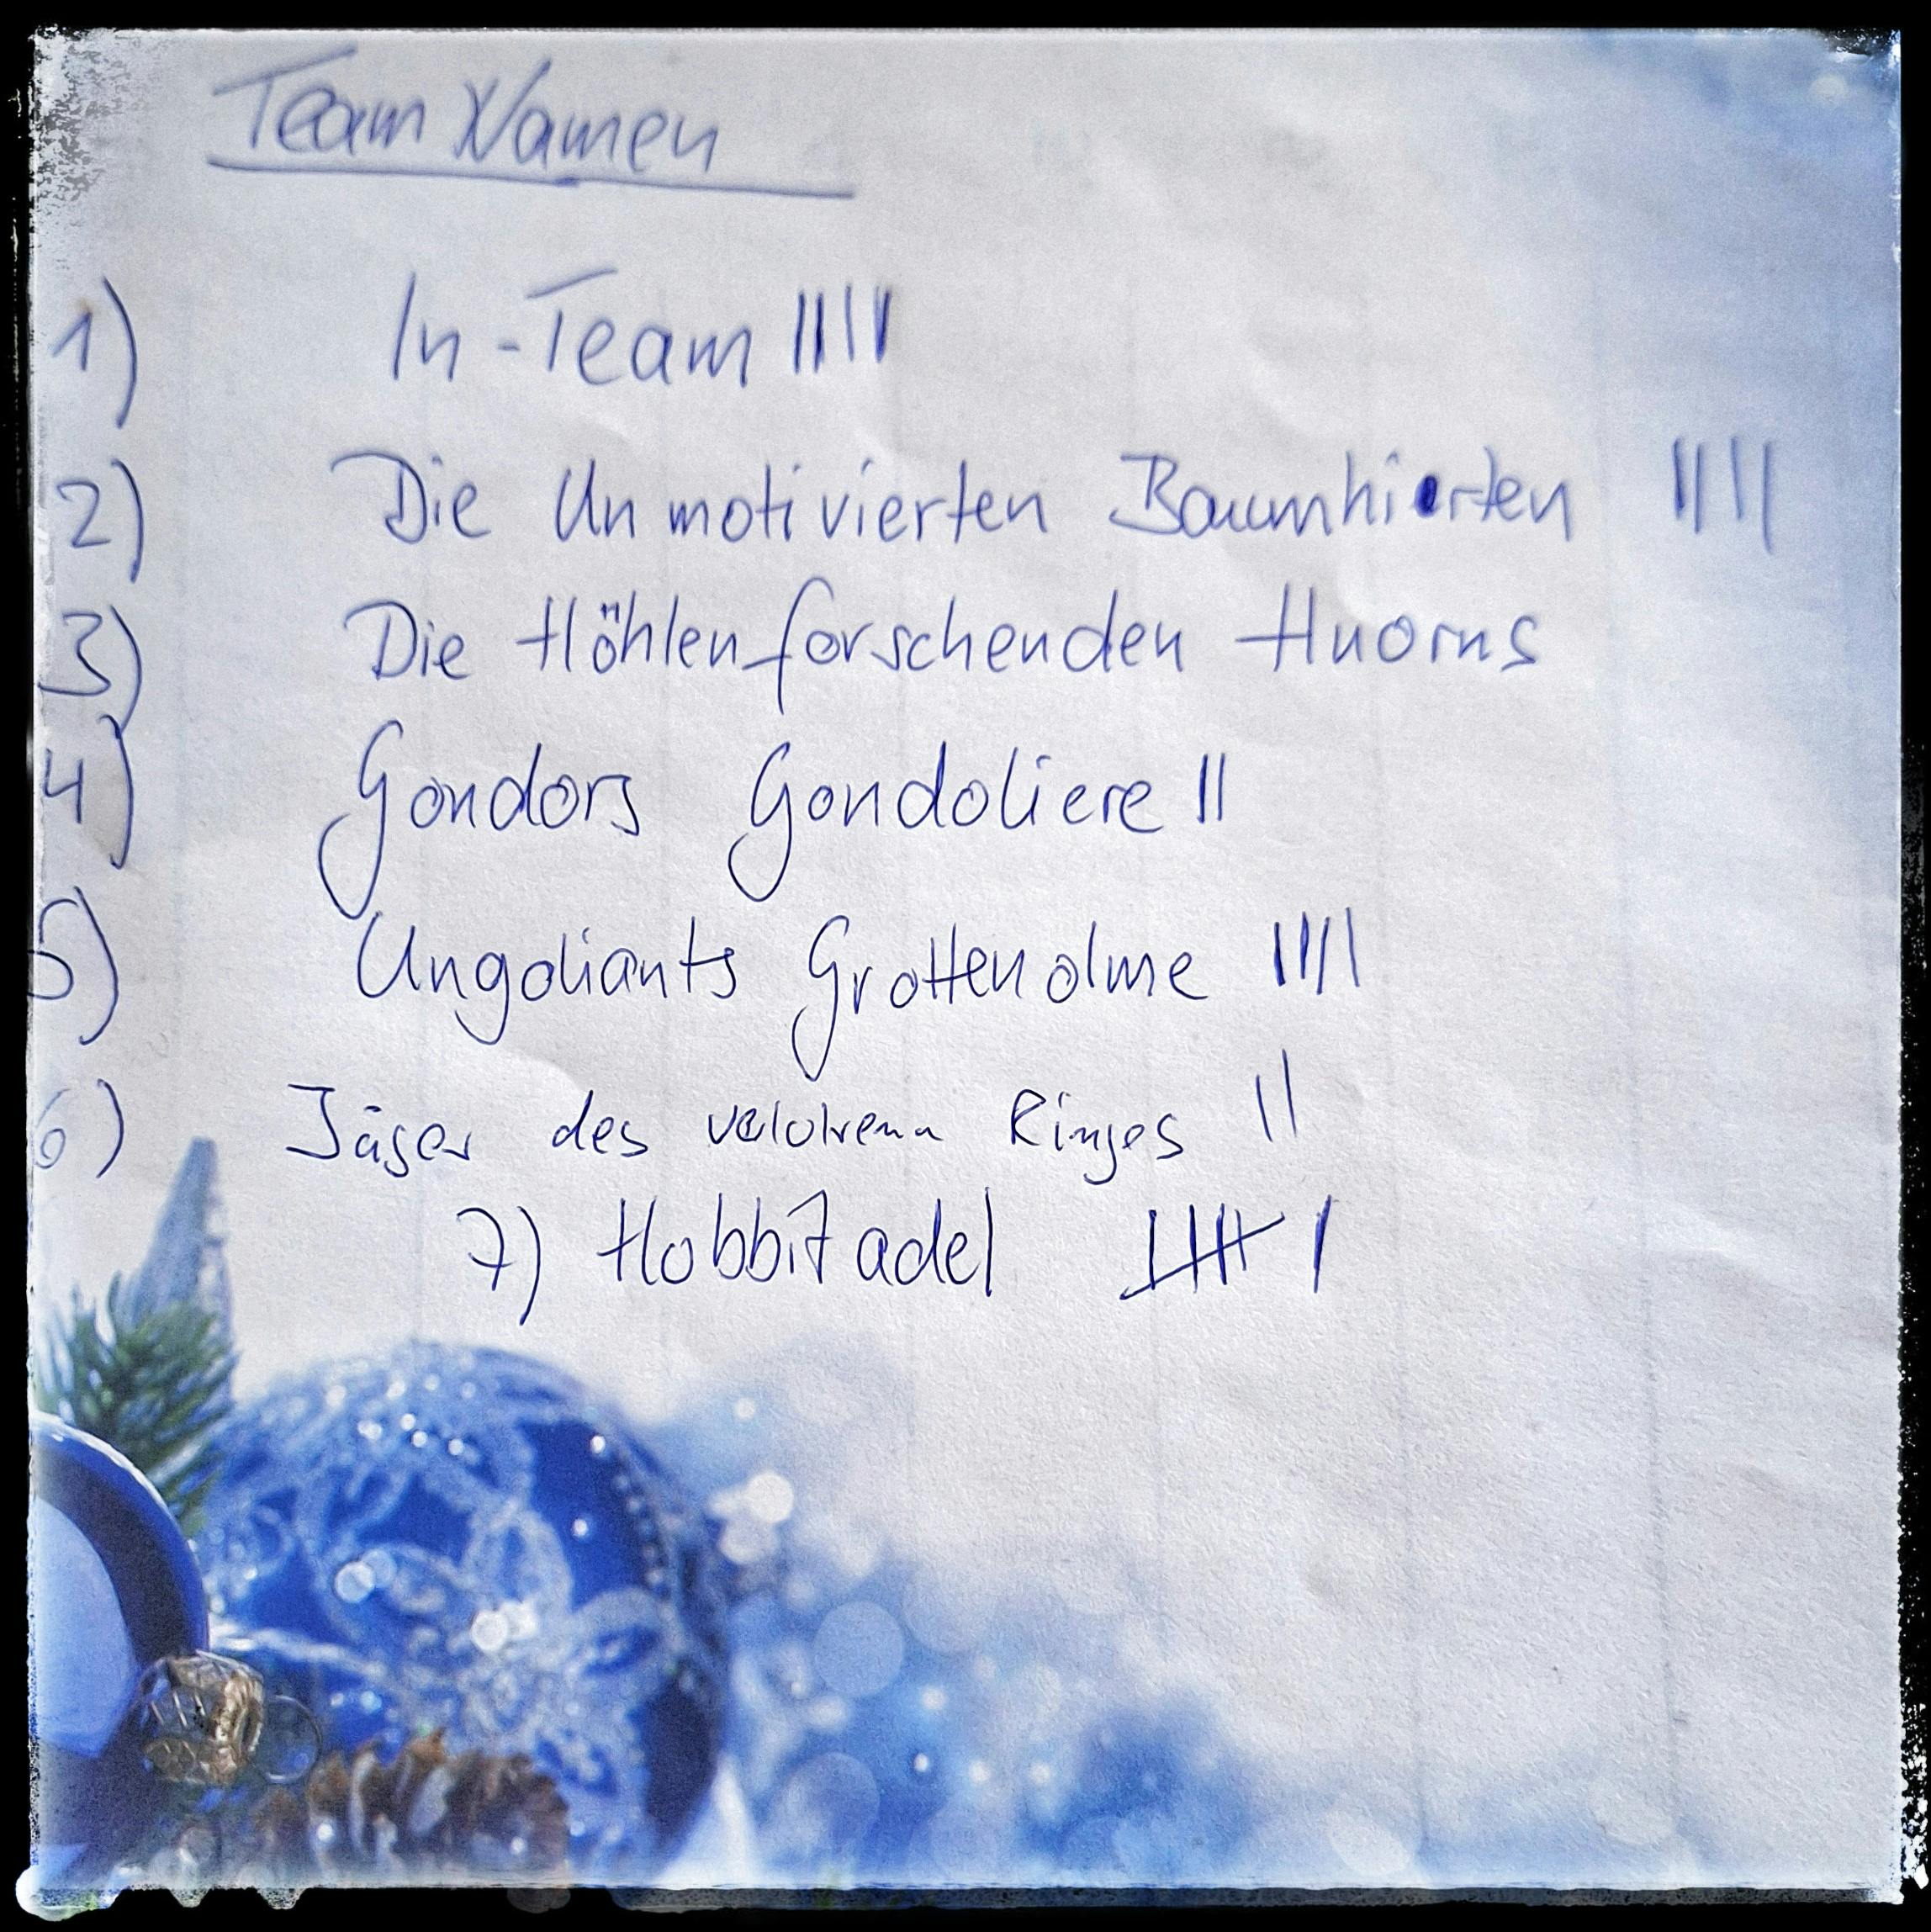 Team Namen
1) In-Team IIII
2) Die Unmotivierten Baumhirten IIII
3) Die Höhlenforschenden Huorns
4) Gondors Gondoliere II
5) Ungoliants Grottenolme IIII
6) Jäger des Ringes II
7) Hobbitadel IIII I